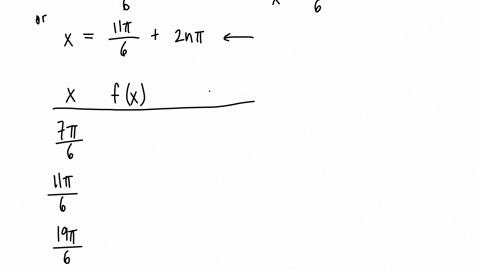 6 x 6
or
x = 11π/6 + 2nπ ←
x f(x)
7π/6
11π/6
19π/6